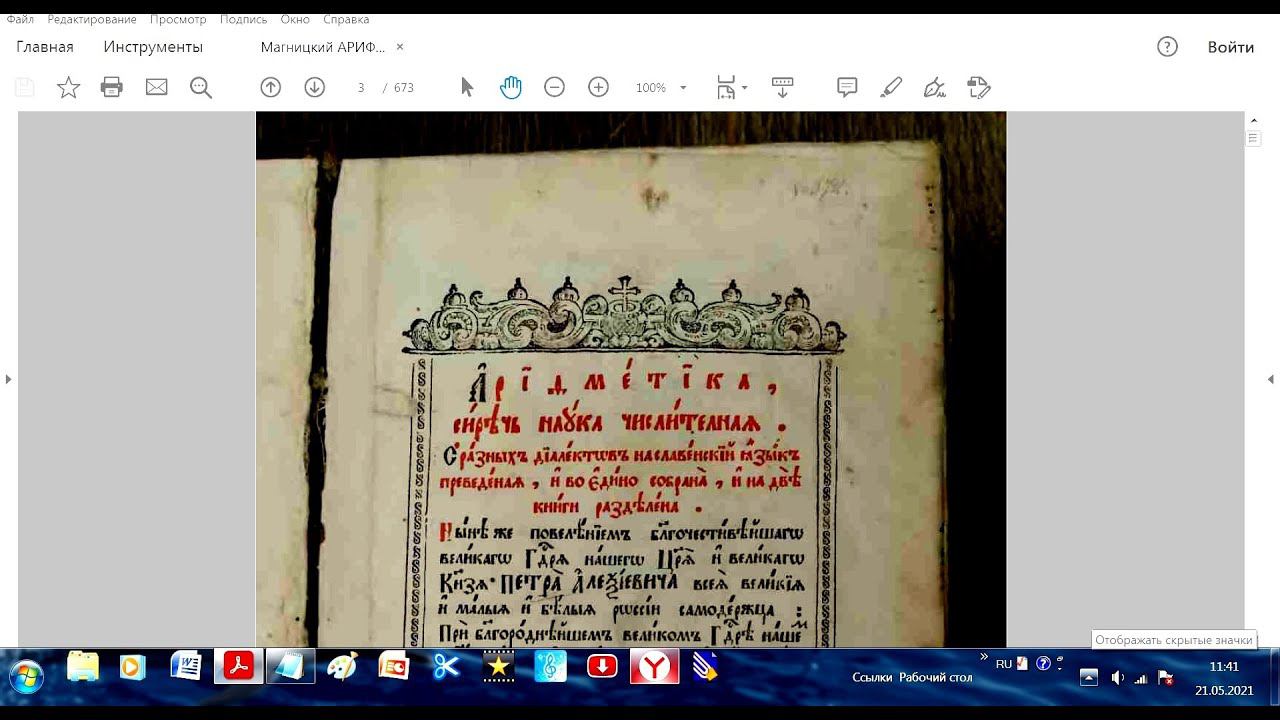 Файл Редактирование Просмотр Подпись Окно Справка
Главная Инструменты Магницкий АРИФ... × Войти
3 / 673 100%
А҆рїѳме́тїка,
си́рѣчь наꙋ́ка числи́телная.
С̾ ра́зныхъ дїале́ктѡвъ на славе́нскїй ꙗ҆зы́къ
преведе́наѧ, и҆ во є҆ди́но собрана̀, и҆ на двѣ̀
кни́ги раздѣле́на.
Ны́нѣ же повелѣ́нїемъ бл҃гочести́вѣйшагѡ
вели́кагѡ Гдⷭ҇рѧ на́шегѡ Цр҃ѧ̀ и҆ вели́кагѡ
Кн҃зѧ ПЕТРА̀ А҆ЛЕѮІ́ЕВИЧА всеѧ̀ вели́кїѧ
и҆ ма́лыѧ и҆ бѣ́лыѧ рѡссі́и самоде́ржца:
Прѝ бл҃горо́днѣйшемъ вели́комъ Гдⷭ҇рѣ на́шемъ
Отображать скрытые значки
Ссылки Рабочий стол » RU 11:41
21.05.2021